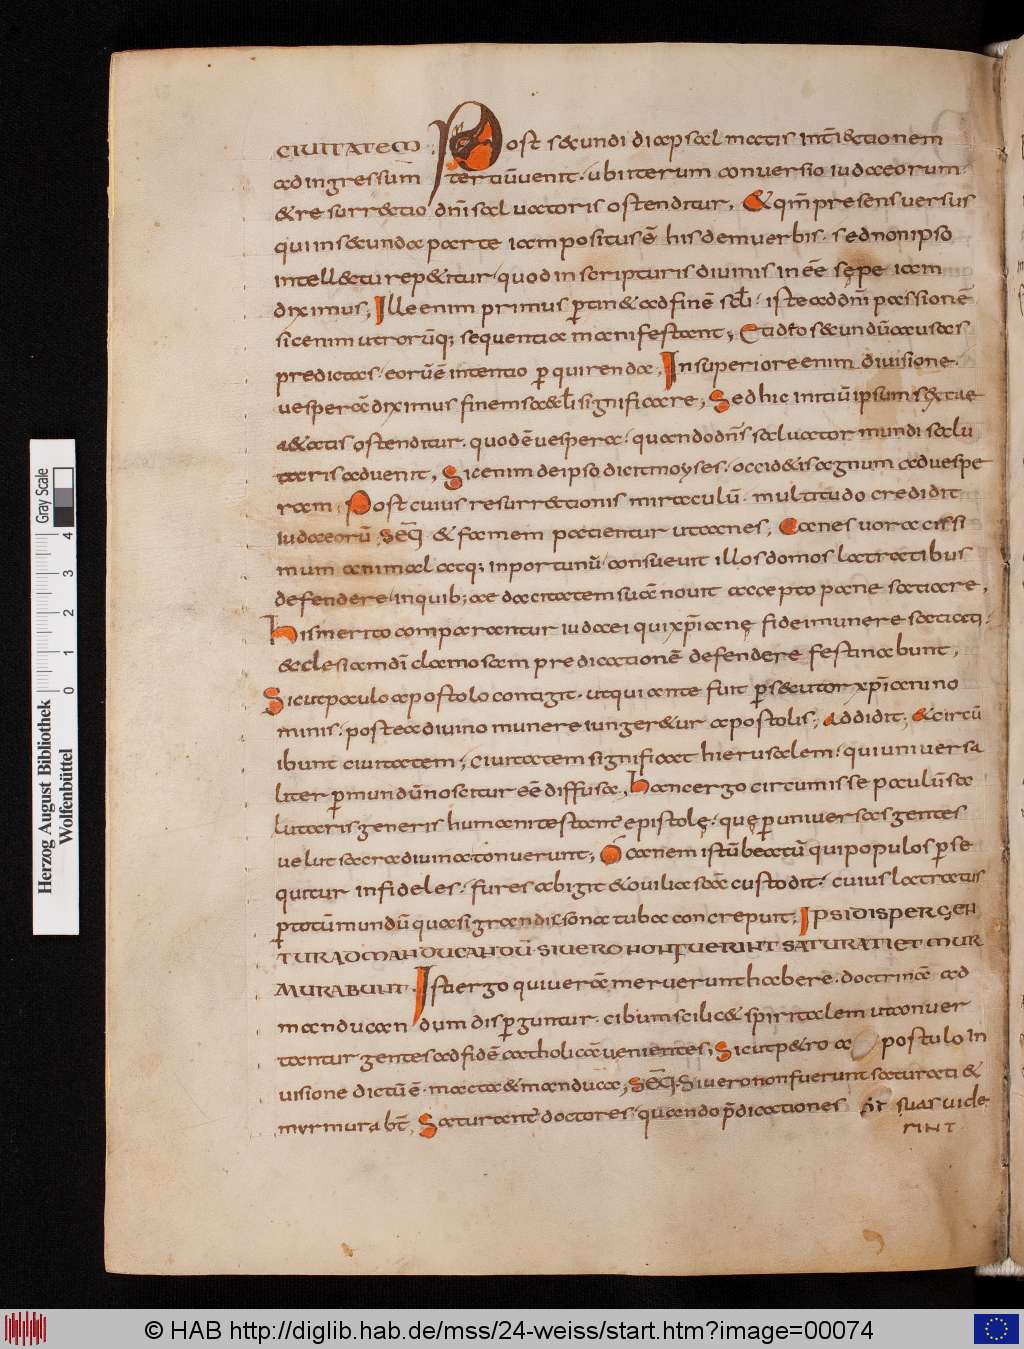 CIUITATEM. Post secundi diapsalmatis int̄iectionem
ad ingressum tertiū uenit. ubi iterum conuersio iudaeorum.
& resurrectio dn̄i saluatoris ostenditur, & qm̄ presens uersus
qui in secunda parte iam positus ē hisdem uerbis. sed non ipso
intellectu repetitur. quod in scripturis diuinis in eē sępe iam
diximus; Ille enim primus ptinet ad finē scłi. iste ad dn̄i passionē
sic enim utrorūq; sequentia manifestant;
predictas. eorū ē intentio p quirenda, In superiore enim diuisione.
uesperā diximus finem saeclī significare, Sed hic initiū ipsum sextae
aetatis ostenditur. quod ē uespera. quando dn̄s saluator mundi salu
taris aduenit, Sic enim de ipso dicit moyses. occidetis agnum ad uespe
ram, Post cuius resurrectionis miraculū. multitudo credidit
iudaeorū Seq̄ & famem patientur ut canes, Canes uoracissi
mum animal atq; inportunū consueuit illos domos latratibus
defendere. in quib; aedacitatem suā nouit accepto pane satiare,
His merito comparantur iudaei qui xp̄ianę fidei munere satiati.
ecclesiam dī clamosam predicationē defendere festinabunt,
Sicut paulo apostolo contigit. ut qui ante fuit psecutor xp̄iani no
minis. postea diuino munere iungeretur apostolis, Addidit; & circū
ibunt ciuitatem, ciuitatem significat hierusalem. qui uniuersa
liter p mundū noscitur eē diffusa, Hanc ergo circumisse paulū sa
lutaris generis humani testantē epistolę. quę p uniuersas gentes
uelut sacra diuina tonuerunt, O canem istū beatū qui populos pse
quitur infideles. fures abigit & ouilia sca custodit. cuius latratus
p totū mundū quasi grandisona tuba concrepuit; IPSI DISPERGEN
TUR AD MANDUCANDŪ. SI UERO NON FUERINT SATURATI ET MUR
MURABUNT. Isti ergo qui uerā meruerunt habere. doctrinā ad
manducandum disperguntur. cibum scilicet spiritalem ut conuer
tantur gentes ad fidē catholicā uenientes; Sicut petro apostulo in
uisione dictū ē. macta & manduca, Seq̄. Si uero non fuerunt saturati &
murmurabt̄, Saturantē doctores. quando p̄dicationes suas uide
rint.
Herzog August Bibliothek
Wolfenbüttel
0 1 2 3 4
Gray Scale
© HAB http://diglib.hab.de/mss/24-weiss/start.htm?image=00074